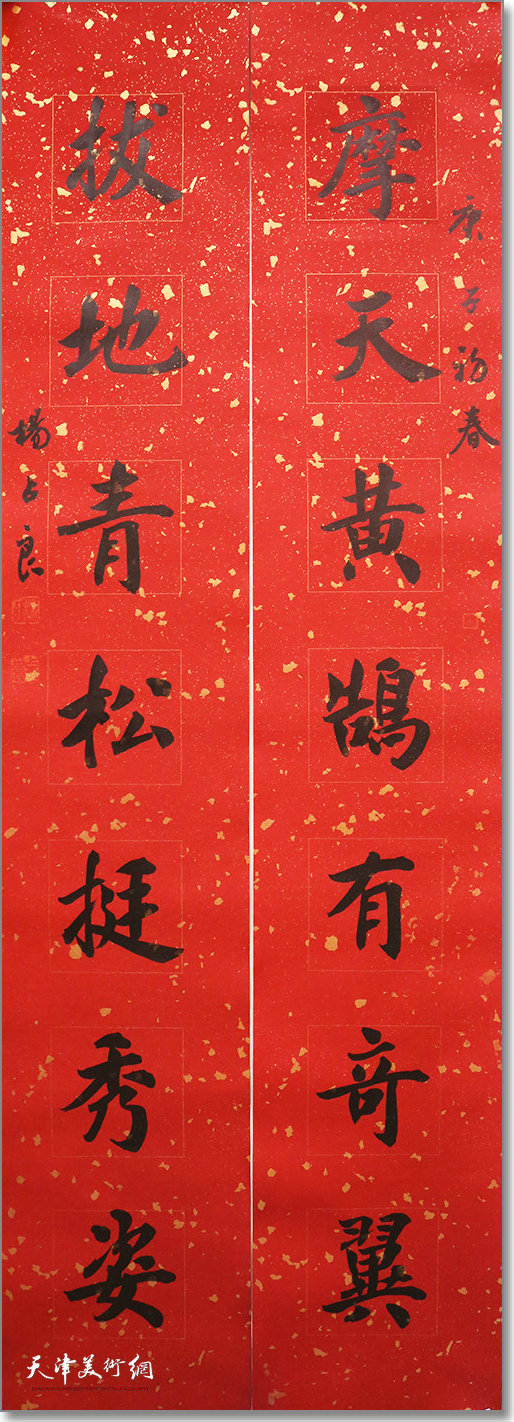 庚子初春
摩天黄鹄有奇翼
拔地青松挺秀姿
楊占良
天津美術網